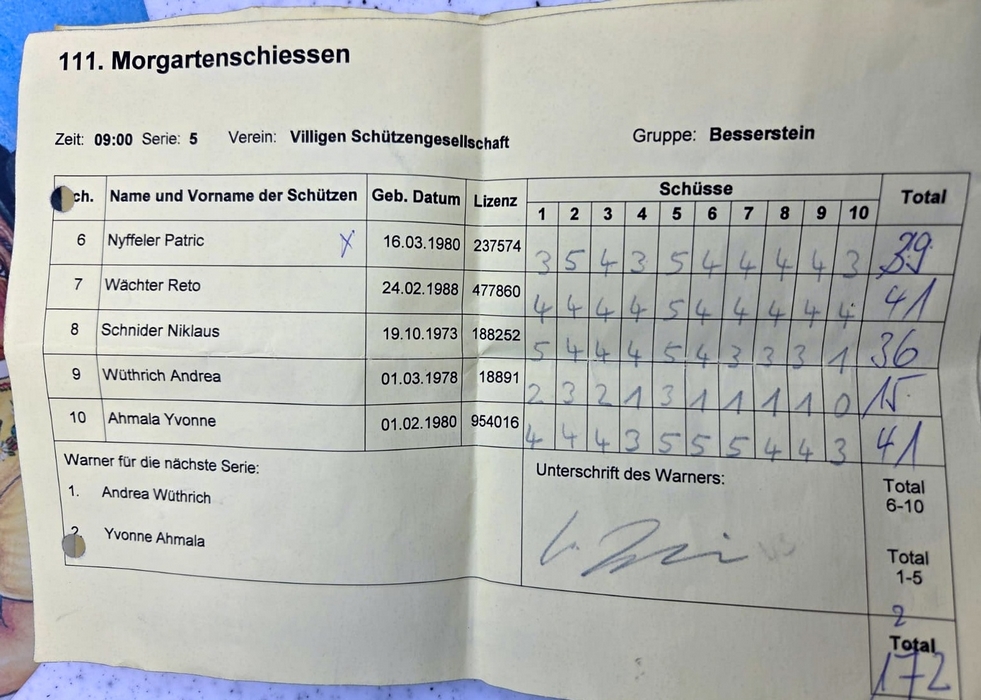 111. Morgartenschiessen
Zeit: 09:00 Serie: 5 Verein: Villigen Schützengesellschaft Gruppe: Besserstein
ch. Name und Vorname der Schützen Geb. Datum Lizenz Schüsse Total
1 2 3 4 5 6 7 8 9 10
6 Nyffeler Patric X 16.03.1980 237574 3 5 4 3 5 4 4 4 4 3 39
7 Wächter Reto 24.02.1988 477860 4 4 4 4 5 4 4 4 4 4 41
8 Schnider Niklaus 19.10.1973 188252 5 4 4 4 5 4 3 3 3 1 36
9 Wüthrich Andrea 01.03.1978 18891 2 3 2 1 3 1 1 1 1 0 15
10 Ahmala Yvonne 01.02.1980 954016 4 4 4 3 5 5 5 4 4 3 41
Warner für die nächste Serie: Unterschrift des Warners:
1. Andrea Wüthrich
2. Yvonne Ahmala
Total
6-10
Total
1-5
2
Total
172